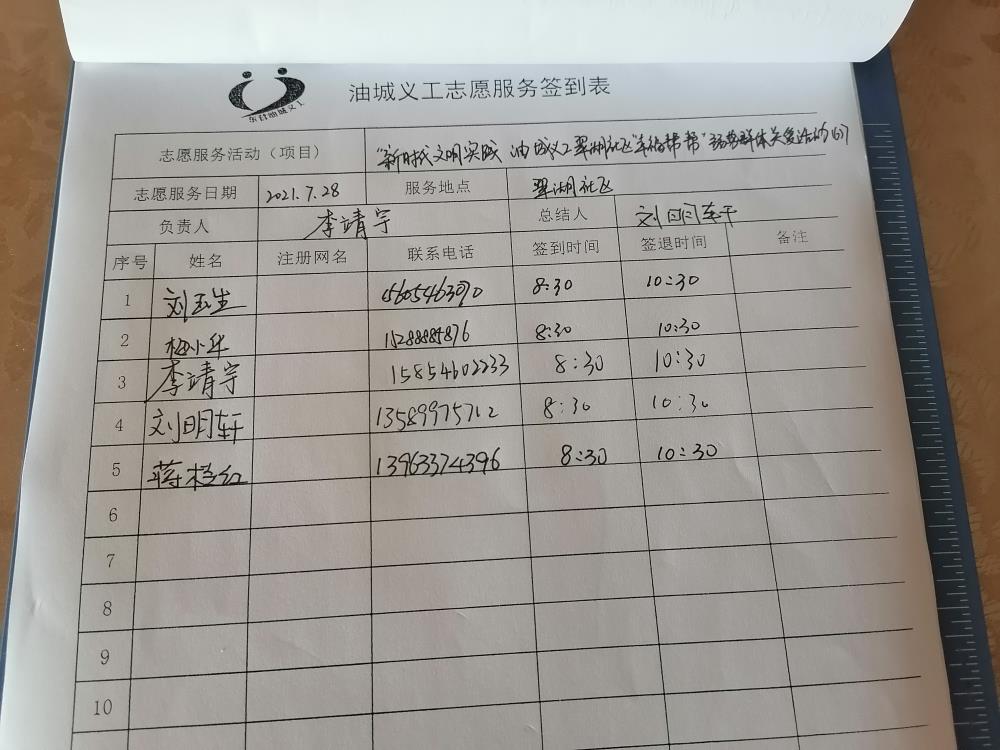 东营油城义工
油城义工志愿服务签到表
志愿服务活动（项目） "新时代文明实践 油城义工翠湖社区"幸福帮帮"弱势群体关爱活动
志愿服务日期 2021.7.28 服务地点 翠湖社区
负责人 李靖宇 总结人 刘明轩
序号 姓名 注册网名 联系电话 签到时间 签退时间 备注
1 刘玉生 15605463070 8:30 10:30
2 梅小华 8:30 10:30
3 李靖宇 15854602233 8:30 10:30
4 刘明轩 13589975712 8:30 10:30
5 蒋 红 13963374396 8:30 10:30
6
7
8
9
10